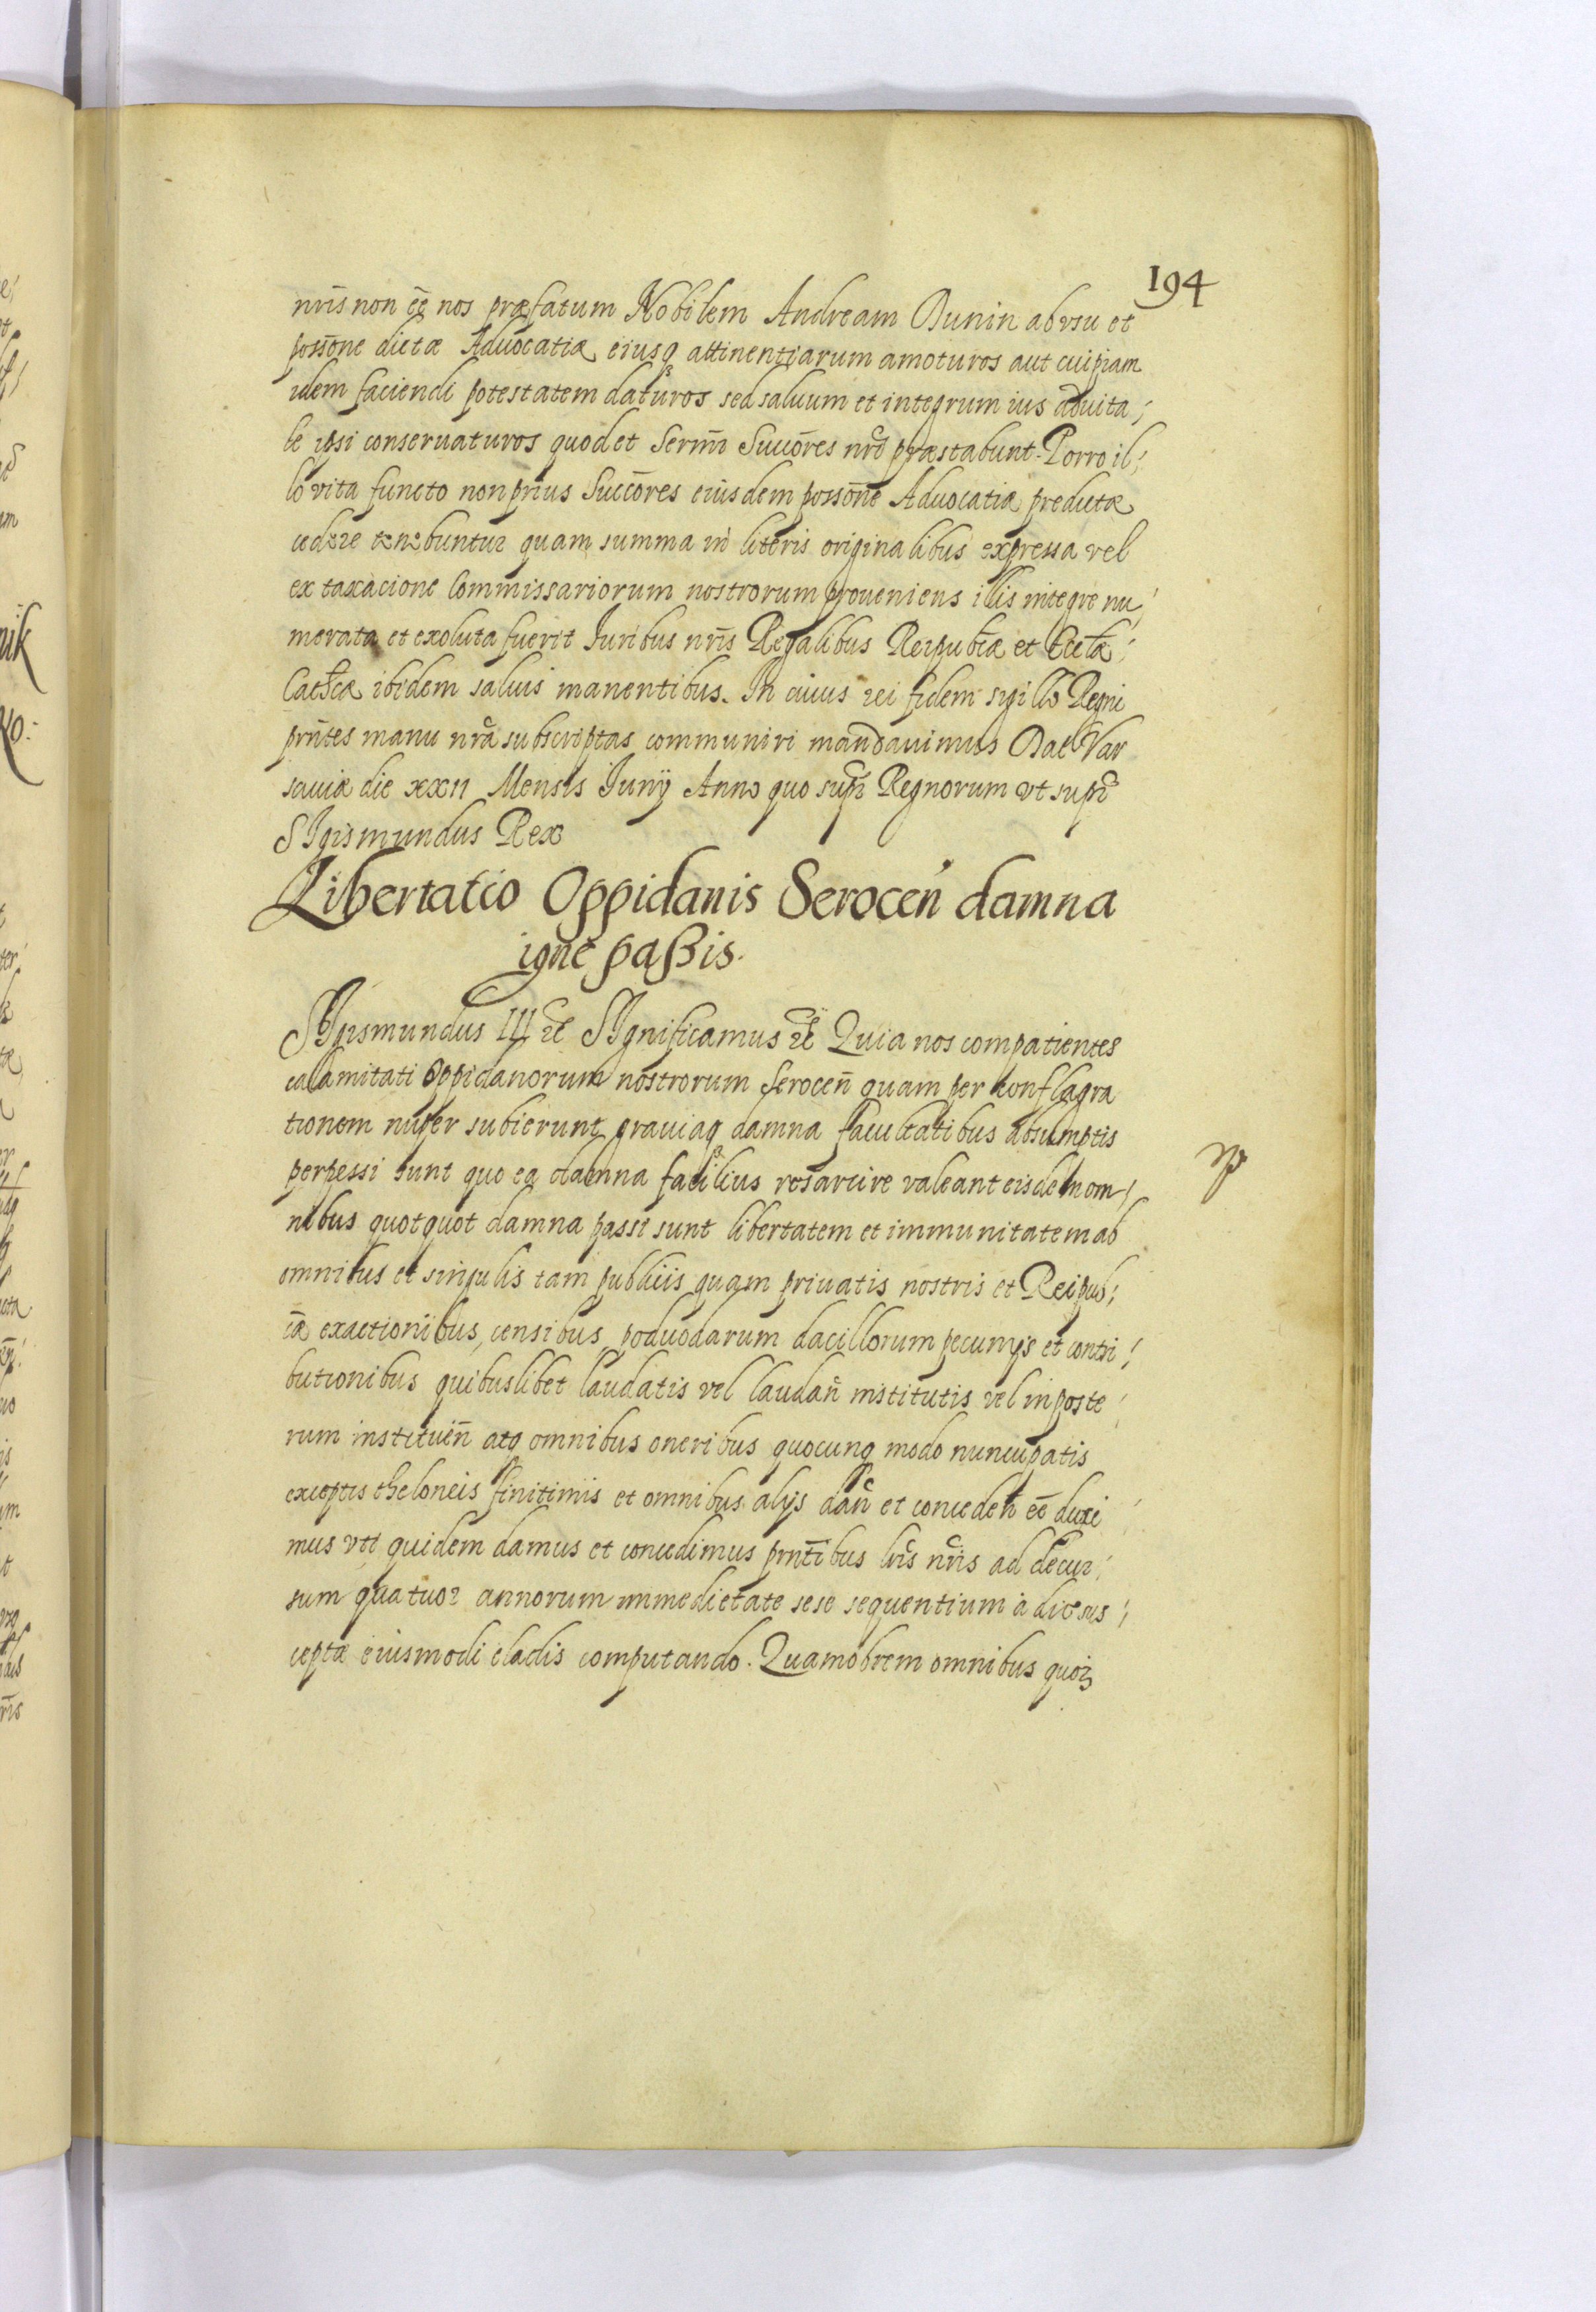 194
nr̃is non eẽ nos præfatum Nobilem Andream Dunin ab vsu et
possõne dictæ Aduocatiæ eiusq attinentiarum amoturos aut cuipiam
idem faciendi potestatem daturos sed saluum et integrum ius aduita/
le ipsi conseruaturos quod et Serm̃i Succõres nrĩ præstabunt. Porro il/
lo vita functo non prius Succõres eiusdem possõne Aduocatiæ predictæ
cedere tenebuntur quam summa in literis originalibus expressa vel
ex taxacione Commissariorum nostrorum proueniens illis integre nu/
merata et exoluta fuerit Iuribus nr̃is Regalibus Reipubcæ et Eccłæ/
Catħcæ ibidem saluis manentibus. In cuius rei fidem sigillo Regni
pñtes manu nrã subscriptas communiri mandauimus Dat Var
sauiæ die XXII Mensis Iunij Anno quo supr̃ Regnorum vt supr̃
SIgismundus Rex
Libertatio Oppidanis Serocen̄ damna
igne paßis.
SIgismundus III etc̃ SIgnificamus etc̃ Quia nos compatientes
calamitati Oppidanorum nostrorum Serocen̄ quam per conflagra
tionem nuper subierunt grauiaq damna facultatibus absumptis
perpessi sunt quo ea damna facilius resarcire valeant eisdem om/
nibus quotquot damna passi sunt libertatem et immunitatem ab
omnibus et singulis tam publicis quam priuatis nostris et Reipub/
cæ exactionibus, censibus, poduodarum dacillorum pecunijs et contri/
butionibus quibuslibet laudatis vel laudan̄ institutis vel in poste/
rum instituen̄ atq omnibus oneribus quocunq modo nuncupatis
exceptis theloneis finitimis et omnibus alijs dan̄ et conceden̄ eẽ duxi/
mus vti quidem damus et concedimus pñtibus lr̃is nr̃is ad decur/
sum quatuor annorum immedietate sese sequentium à die sus/
ceptæ eiusmodi cladis computando. Quamobrem omnibus quor̃